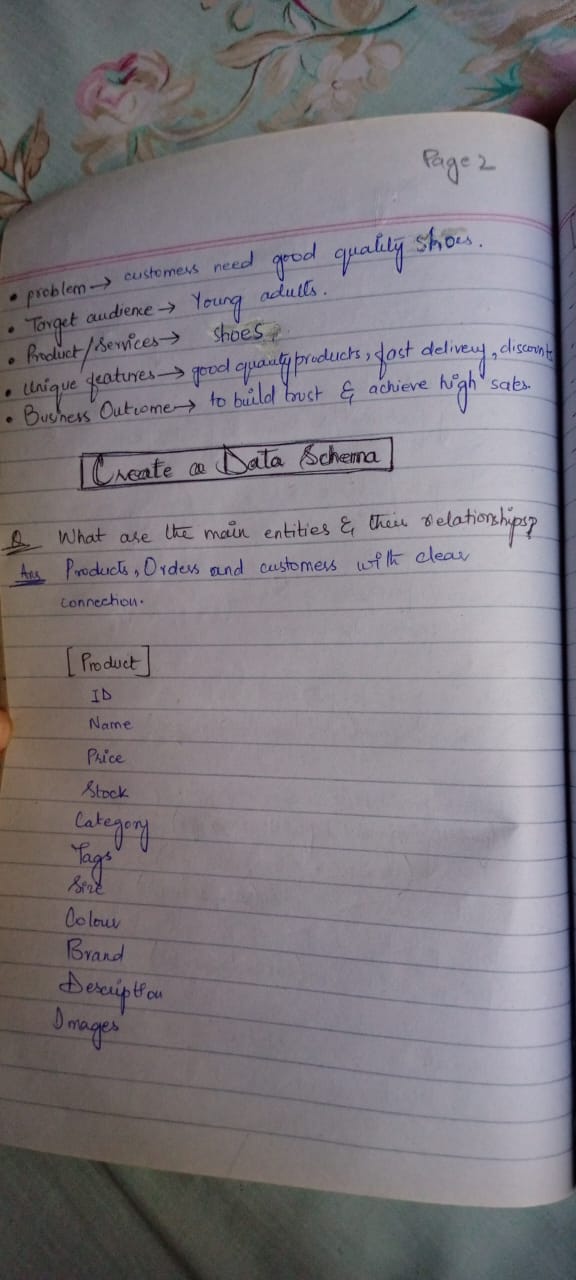 Page 2
• problem → customers need good quality shoes.
• Target audience → Young adults.
• Product/Services → shoes.
• Unique features → good quality products, fast delivery, discounts
• Business Outcome → to build trust & achieve high sales.
Create a Data Schema
Q What are the main entities & their relationships?
Ans Products, Orders and customers with clear
connection.
[Product]
ID
Name
Price
Stock
Category
Tags
Size
Colour
Brand
Description
Images